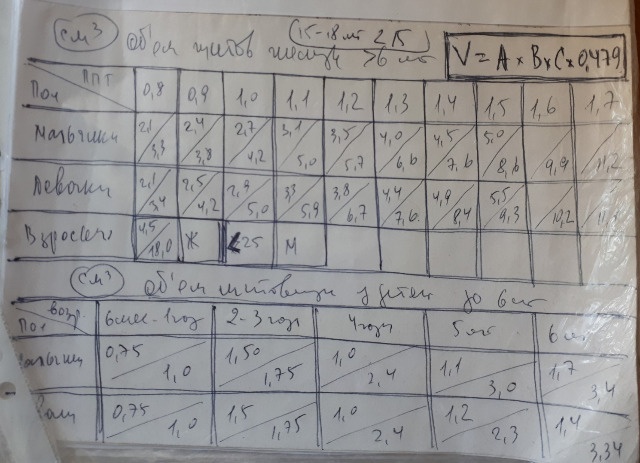 см3 (15-18 лет 2 15)
Объем щитов >6 лет V = A × B × C × 0,479
ППТ
Пол 0,8 0,9 1,0 1,1 1,2 1,3 1,4 1,5 1,6 1,7
Мальчики 2,1/3,3 2,4/3,8 2,7/4,2 3,1/5,0 3,5/5,7 4,0/6,6 4,5/7,6 5,0/8,6 /9,9 /11,2
Девочки 2,1/3,4 2,5/4,2 2,9/5,0 3,3/5,9 3,8/6,7 4,4/7,6 4,9/8,4 5,5/9,3 /10,2
Взрослые 4,5/18,0 Ж <25 М
см3 Объем щитовидн у детей до 6 лет
возр.
Пол 6 мес - 1 год 2-3 года 4 года 5 лет 6 лет
0,75/1,0 1,50/1,75 1,0/2,4 1,1/3,0 1,7/3,4
0,75/1,0 1,5/1,75 1,0/2,4 1,2/2,3 1,4/3,34